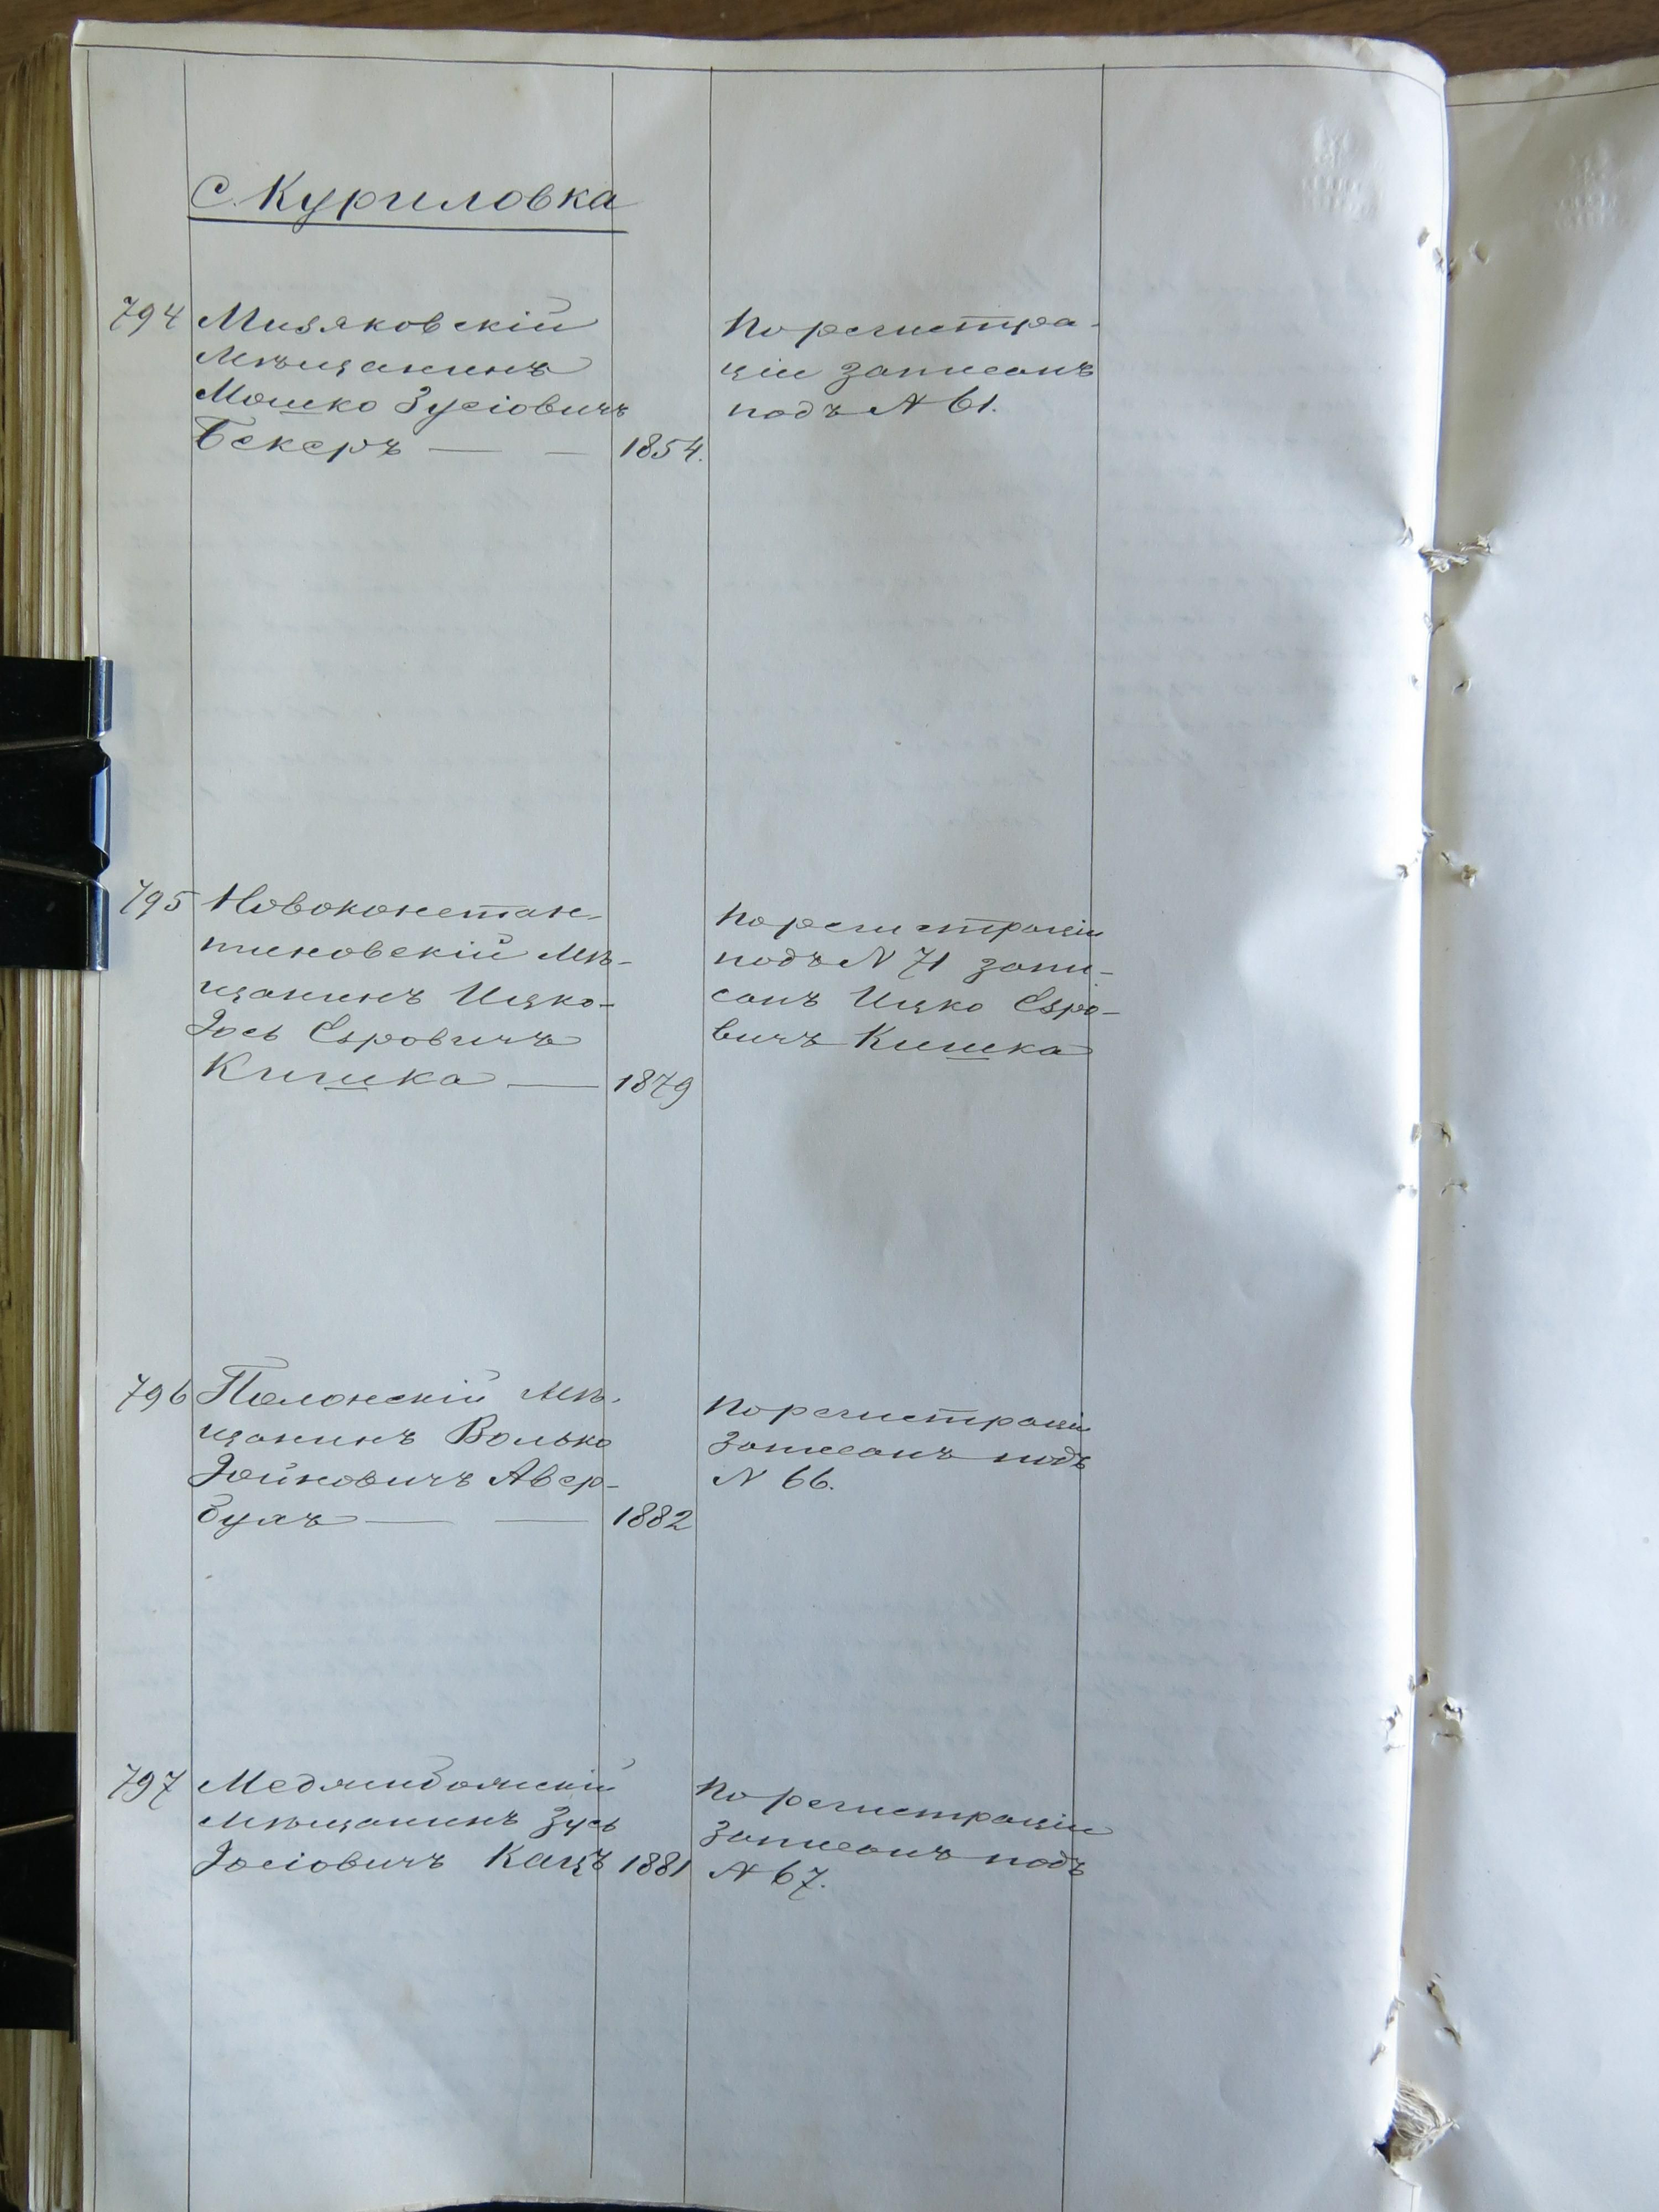 С. Куриловка
794 Мизяковскій
Мѣщанинъ
Мошко Зусіовичъ
Бекеръ — — 1854.
По регистра-
ціи записанъ
подъ № 61.
795 Новоконстан-
тиновскій Мѣ-
щанинъ Ицко-
Іось Сзровичъ
Кишка — 1879
По регистраціи
подъ № 71 запи-
санъ Ицко Сзро-
вичъ Кишка
796 Полонскій Мѣ-
щанинъ Волько
Іойновичъ Авер-
бухъ — — 1882
По регистраціи
записанъ подъ
№ 66.
797 Меджибожскій
Мѣщанинъ Зусь
Іосіовичъ Кацъ 1881
По регистраціи
записанъ подъ
№ 67.